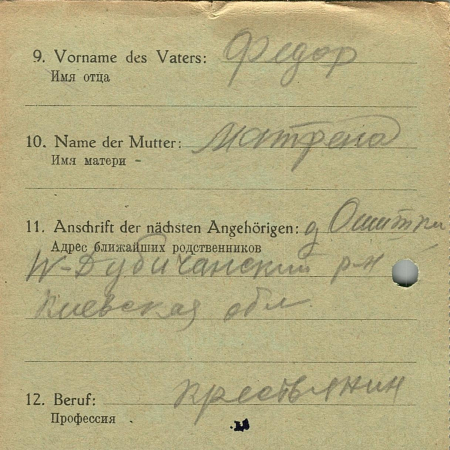 9. Vorname des Vaters: Федор
Имя отца
10. Name der Mutter: Матрена
Имя матери -
11. Anschrift der nächsten Angehörigen: д Ошитки
Адрес ближайших родственников
Н-Дубичанский р-н
Киевская обл.
12. Beruf: крестьянин
Профессия